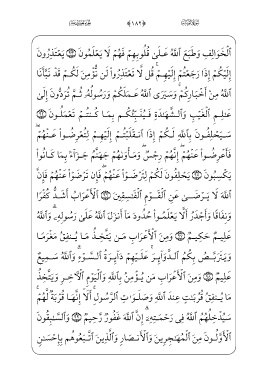 ٱلْخَوَالِفِ وَطَبَعَ ٱللَّهُ عَلَىٰ قُلُوبِهِمْ فَهُمْ لَا يَعْلَمُونَ ۝ يَعْتَذِرُونَ
إِلَيْكُمْ إِذَا رَجَعْتُمْ إِلَيْهِمْ ۚ قُل لَّا تَعْتَذِرُوا۟ لَن نُّؤْمِنَ لَكُمْ قَدْ نَبَّأَنَا
ٱللَّهُ مِنْ أَخْبَارِكُمْ ۚ وَسَيَرَى ٱللَّهُ عَمَلَكُمْ وَرَسُولُهُۥ ثُمَّ تُرَدُّونَ إِلَىٰ
عَٰلِمِ ٱلْغَيْبِ وَٱلشَّهَٰدَةِ فَيُنَبِّئُكُم بِمَا كُنتُمْ تَعْمَلُونَ ۝
سَيَحْلِفُونَ بِٱللَّهِ لَكُمْ إِذَا ٱنقَلَبْتُمْ إِلَيْهِمْ لِتُعْرِضُوا۟ عَنْهُمْ ۖ
فَأَعْرِضُوا۟ عَنْهُمْ ۖ إِنَّهُمْ رِجْسٌ ۖ وَمَأْوَىٰهُمْ جَهَنَّمُ جَزَآءًۢ بِمَا كَانُوا۟
يَكْسِبُونَ ۝ يَحْلِفُونَ لَكُمْ لِتَرْضَوْا۟ عَنْهُمْ ۖ فَإِن تَرْضَوْا۟ عَنْهُمْ فَإِنَّ
ٱللَّهَ لَا يَرْضَىٰ عَنِ ٱلْقَوْمِ ٱلْفَٰسِقِينَ ۝ ٱلْأَعْرَابُ أَشَدُّ كُفْرًا
وَنِفَاقًا وَأَجْدَرُ أَلَّا يَعْلَمُوا۟ حُدُودَ مَآ أَنزَلَ ٱللَّهُ عَلَىٰ رَسُولِهِۦ ۗ وَٱللَّهُ
عَلِيمٌ حَكِيمٌ ۝ وَمِنَ ٱلْأَعْرَابِ مَن يَتَّخِذُ مَا يُنفِقُ مَغْرَمًا
وَيَتَرَبَّصُ بِكُمُ ٱلدَّوَآئِرَ ۚ عَلَيْهِمْ دَآئِرَةُ ٱلسَّوْءِ ۗ وَٱللَّهُ سَمِيعٌ
عَلِيمٌ ۝ وَمِنَ ٱلْأَعْرَابِ مَن يُؤْمِنُ بِٱللَّهِ وَٱلْيَوْمِ ٱلْءَاخِرِ وَيَتَّخِذُ
مَا يُنفِقُ قُرُبَٰتٍ عِندَ ٱللَّهِ وَصَلَوَٰتِ ٱلرَّسُولِ ۚ أَلَآ إِنَّهَا قُرْبَةٌ لَّهُمْ ۚ
سَيُدْخِلُهُمُ ٱللَّهُ فِى رَحْمَتِهِۦٓ ۗ إِنَّ ٱللَّهَ غَفُورٌ رَّحِيمٌ ۝ وَٱلسَّٰبِقُونَ
ٱلْأَوَّلُونَ مِنَ ٱلْمُهَٰجِرِينَ وَٱلْأَنصَارِ وَٱلَّذِينَ ٱتَّبَعُوهُم بِإِحْسَٰنٍ